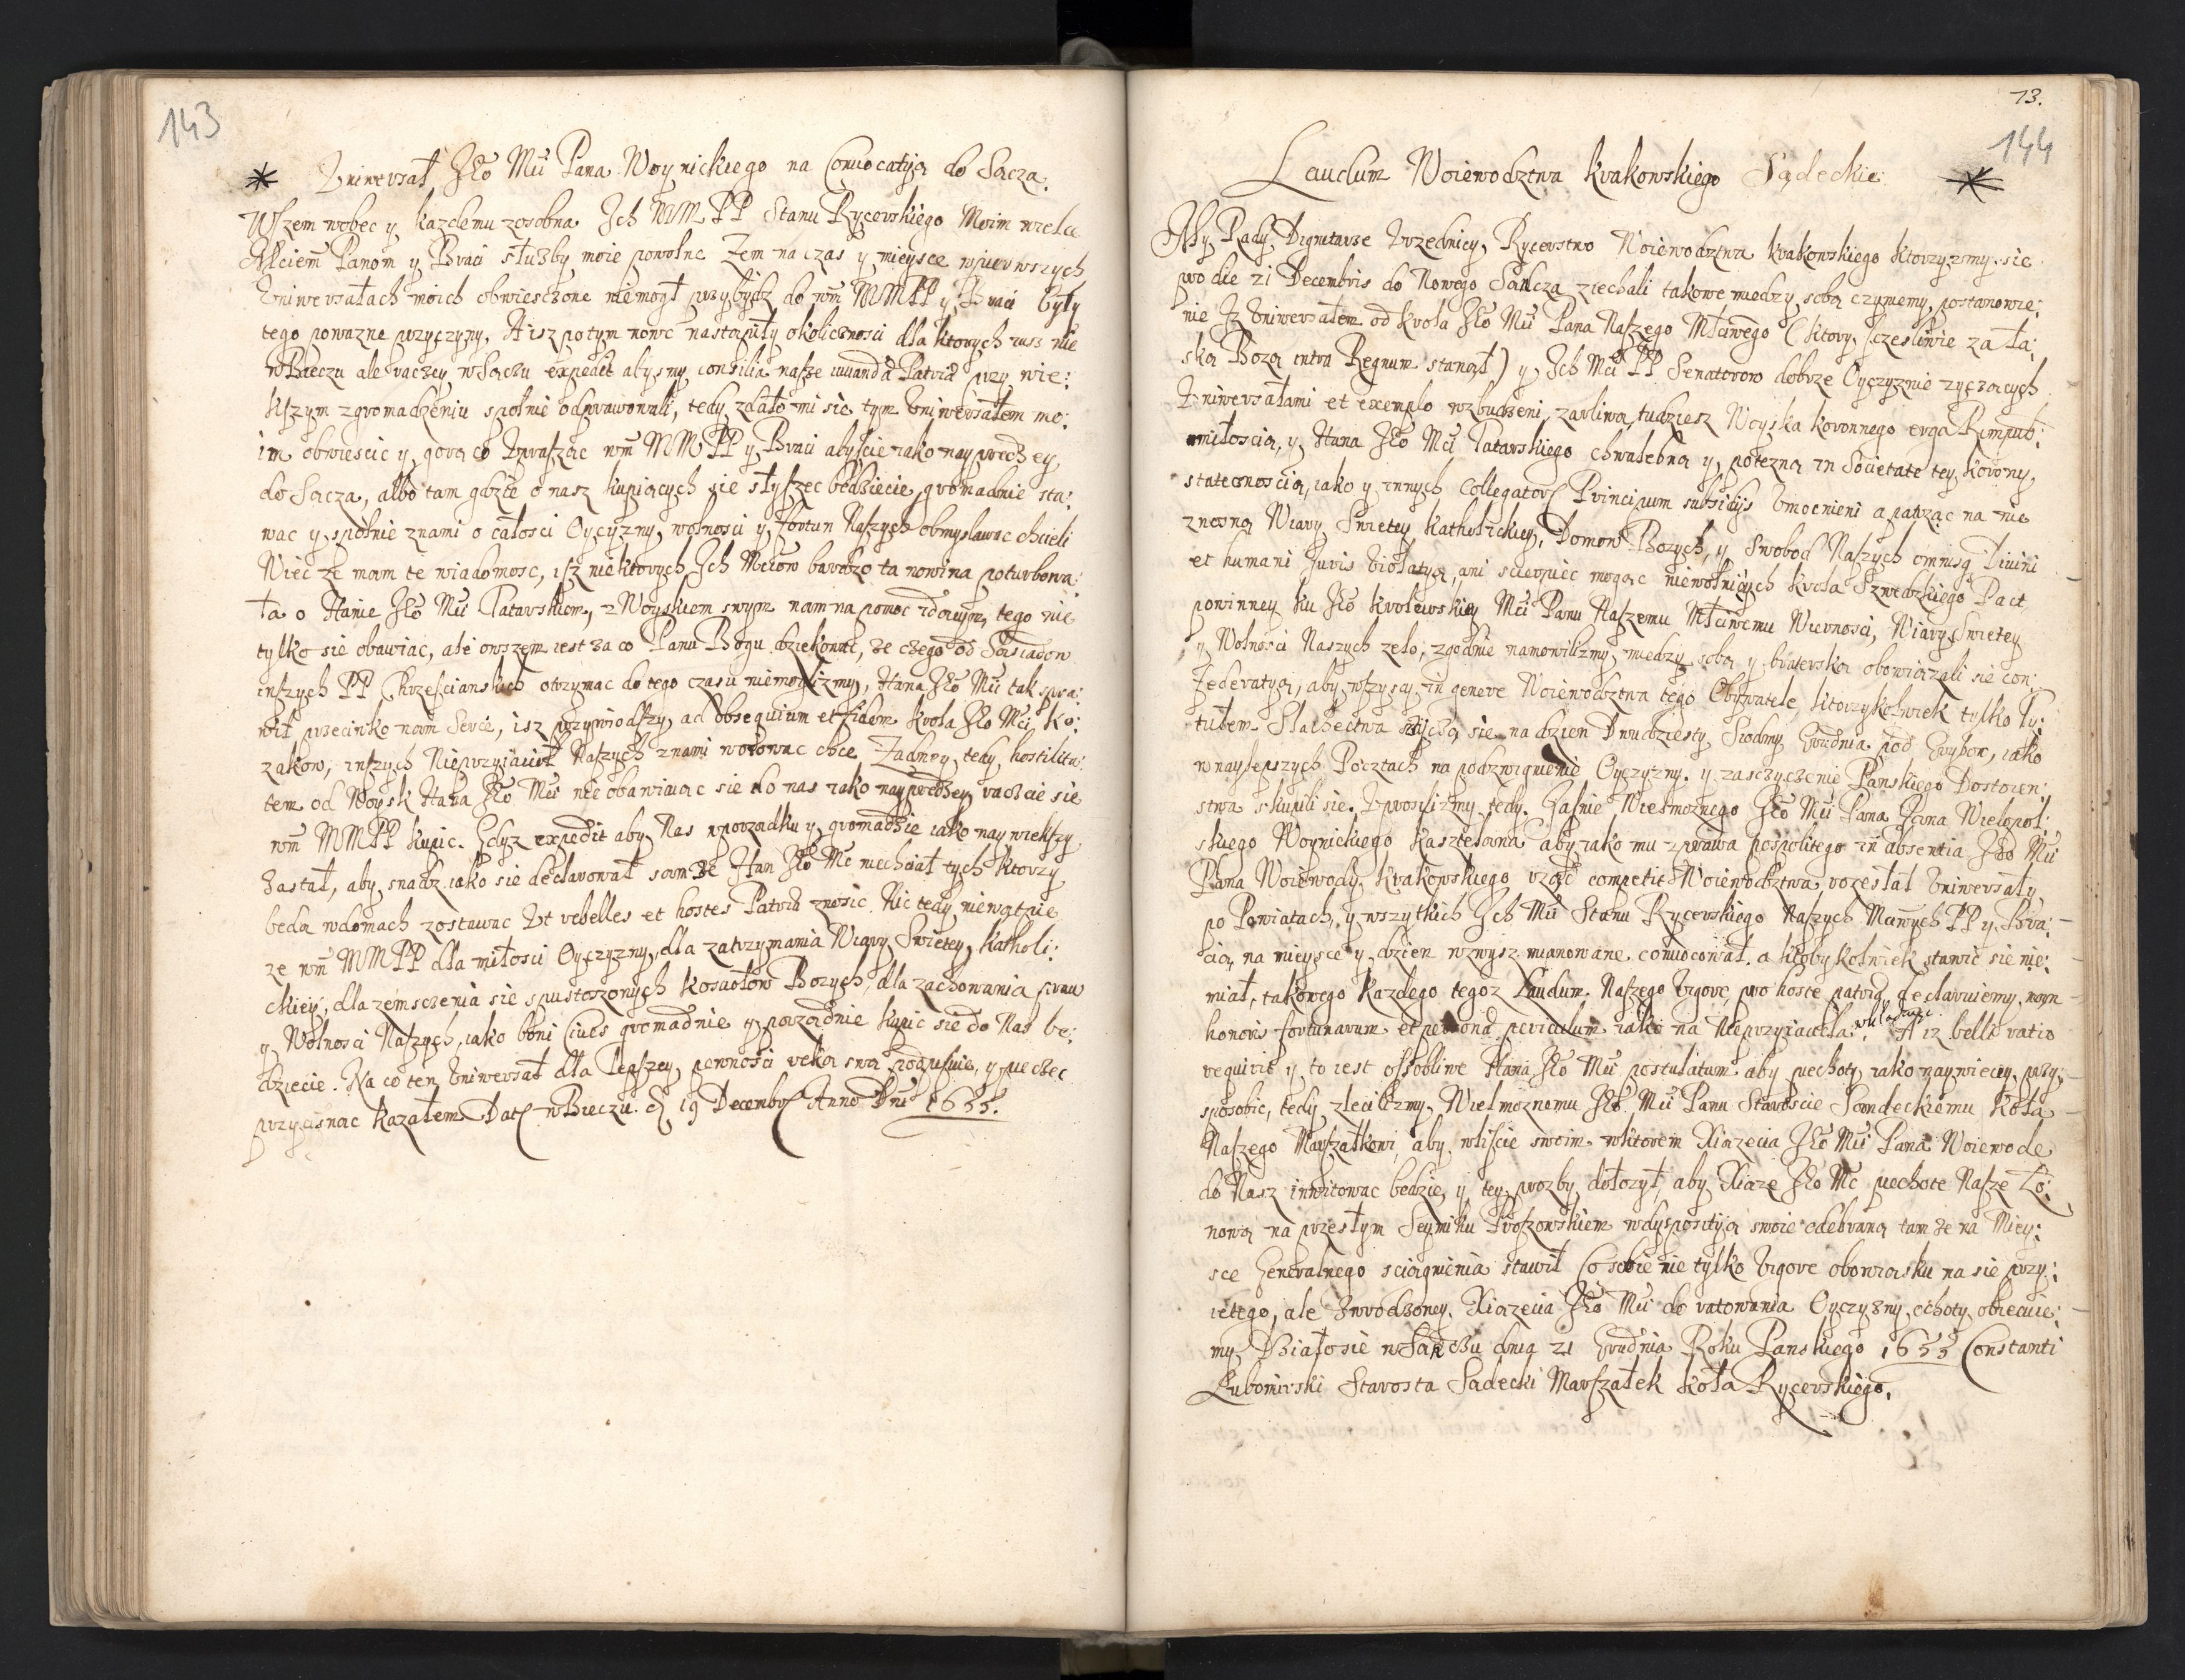 143
* Vniwersał JKo Mci Pana Woynickiego na Convocatyą do Sącza.
Wszem wobec y kazdemu zosobna Ich MM PP Stanu Rycerskiego Moim wielce
Mciem Panom y Braci służby moie powolne Zem na czas y mieysce wpierwszych
Vniwersałach moich obwiesczone niemogł przybydz do wm MM PP y Braci były
tego powazne przyczyny, A isz potym nowe nastąpiły okolicznosci dla ktorych iusz nie
wBieczu ale raczey wSączu expedit abysmy consilia nasze iuuanda Patria przy wie:
kszym zgromadzeniu społnie odprawowali, tedy zdało mi sie tym Vniwersałem mo:
im obwiescic y gorąco Vpraszac wm MM PP y Braci abyscie iako nayprędzey
do Sącza, albo tam gdzie o nasz kupiących sie słyszec będziecie gromadnie sta:
wac y społnie znami o całosci Oyczyzny, wolnosci y fortun Naszych obmyslawac chcieli
Wiec ze mam te wiadomosc, isz niektorych Ich Mciow bardzo ta nowina poturbowa:
ła o Hanie JKo Mci Tatarskiem, z Woyskiem swym nam na pomoc idącym, tego nie
tylko sie obawiac, ale owszem iest za co Panu Bogu dziekowac, ze czego od Sąsiadow
inszych PP Chrzescianskich otrzymac do tego czasu niemoglizmy, Hana JKo Mci tak spra:
wił przeciwko nam Serce, isz przywiodszy ad obsequium et fidem krola JKo Mci Ko:
zakow, inszych Nieprzyiaciół Naszych znami woiowac chce Zadney tedy hostilita:
tem od Woysk Hana JKo Mci nie obawiaiąc sie do nas iako nayprędzey raczcie sie
wm MM PP kupic. Gdyz expedit aby Nas wporządku y gromadzie iako naywiekszy
Zastał, aby snadz iako sie declarował sam ze Han JKo Mc niechciał tych ktorzy
beda wdomach zostawac Vt rebelles et hostes Patriæ znosic. Nic tedy niewątpię
ze wm MM PP dla miłosci Oyczyzny, dla zatrzymania Wiary Swietey Katholi:
ckiey, dla zemsczenia sie spustoszonych kosciołow Bozych, dla zachowania praw
y Wolnosci Naszych, iako boni Ciues gromadnie y porządnie kupic sie do Nas bę:
dziecie. Na co ten Vniwersał dla lepszey pewnosci ręką swą podpisuię, y pieczęc
przycisnac kazałem Dat wBieczu d 19 Decembr Anno Dni 1655.
13.
144
Laudum Woiewodztwa krakowskiego Sądeckie *
My Rady, Dignitarze Vrzednicy, Rycerstwo Woiewodztwa krakowskiego ktorzyzmy sie
pro die 21 Decembris do Nowego Sącza ziechali takowe miedzy sobą czyniemy postanowie:
nie Iz Vniwersałem od krola JKo Mci Pana Naszego Mciwego (ktory sczesliwie za ła:
ską Bozą intra Regnum stanął) y Ich Mci PP Senatorow dobrze Oyczyznie zyczących
Vniwersałami et exemplo wzbudzeni, zarliwą tudziesz Woyska koronnego erga Rempub:
miłoscią, y Hana JKo Mci Tatarskiego chwalebną y potezną in Societate tey korony
statecznoscią, iako y innych Collegator Principum subsidijs Vmocnieni a patrząc na nie
znosną Wiary Swietey Katholickiey, Domow Bozych, y Swobod Naszych omnisq Diuini
et humani Juris violatyą, ani scierpiec mogąc niewolniczych krola Szwedzkiego Pact
powinney ku JKo krolewskiey Mci Panu Naszemu Mciwemu Wiernosci, Wiary Swietey
y Wolnosci Naszych zelo, zgodnie namowilizmy miedzy sobą y braterską obowiązali sie con:
Federatyą, aby wszyscy in genere Woiewodztwa tego Obywatele, ktorzykolwiek tylko Ty:
tułem Slachectwa sczycą sie na dzien Dwudziesty Siodmy Grudnia pod Grybow, iako
wnaylepszych Pocztach na podzwignienie Oyczyzny y zasczyczenie Panskiego Dostoien:
stwa skupili sie. Vprosilizmy tedy Jasnie Wielmoznego JKo Mci Pana Jana Wielopol:
skiego Woynickiego Kasztelana aby iako mu z prawa pospolitego in absentia JKo Mci
Pana Woiewody krakowskiego rząd competit Woiewodztwa rozesłał Vniwersały
po Powiatach, y wszytkich Ich Mci Stanu Rycerskiego Naszych Mciwych PP y Bra:
cią na mieysce y dzien wzwysz mianowane conuocował. a ktobykolwiek stawic sie nie:
miał, takowego kazdego tegoz Laudum Naszego Vigore, pro hoste patriæ declaruiemy, wym
honoris fortunarum et personæ periculum iako na Nieprzyiaciela wkładaiąc. A iz belli ratio
requirit y to iest ossobliwe Hana JKo Mci postulatum aby piechoty iako naywiecey przy:
sposobic, tedy zlecilizmy Wielmoznemu JKo Mci Panu Staroscie Sandeckiemu Koła
Naszego Marszałkowi, aby wliscie swoim wktorem Xiązecia JKo Mci Pana Woiewode
do Nasz inwitowac bedzie, y tey prozby dołozył, aby Xiąze JKo Mc piechote Nasze Ło:
nową na przesłym Seymiku Proszowskiem wdyspositią swoie odebraną tam ze na Miey:
sce Generalnego sciągnienia stawił Co sobie nie tylko Vigore obowiasku na sie przy:
ietego, ale Vwrodzoney Xiązecia JKo Mci do ratowania Oyczyzny ochoty obiecuie:
my. Działosie wSączu dnia 21 Grudnia Roku Panskiego 1655 Constanti
Lubomirski Starosta Sadecki Marszałek Koła Rycerskiego.